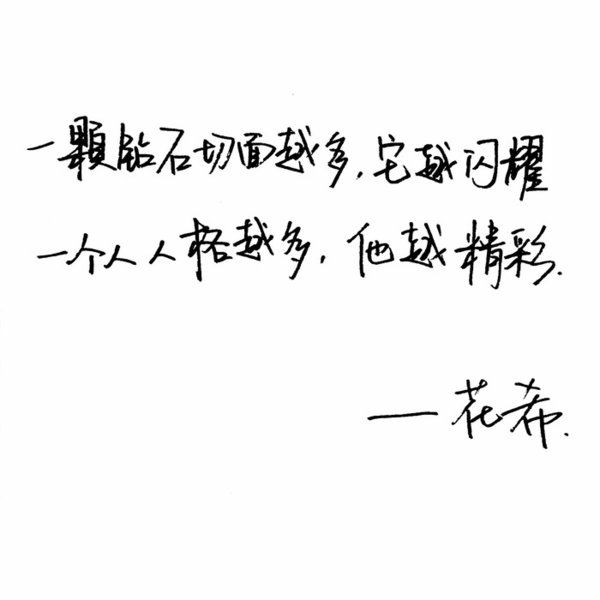 一顆鉆石切面越多,它越闪耀
一个人人格越多,他越精彩.
——花希.